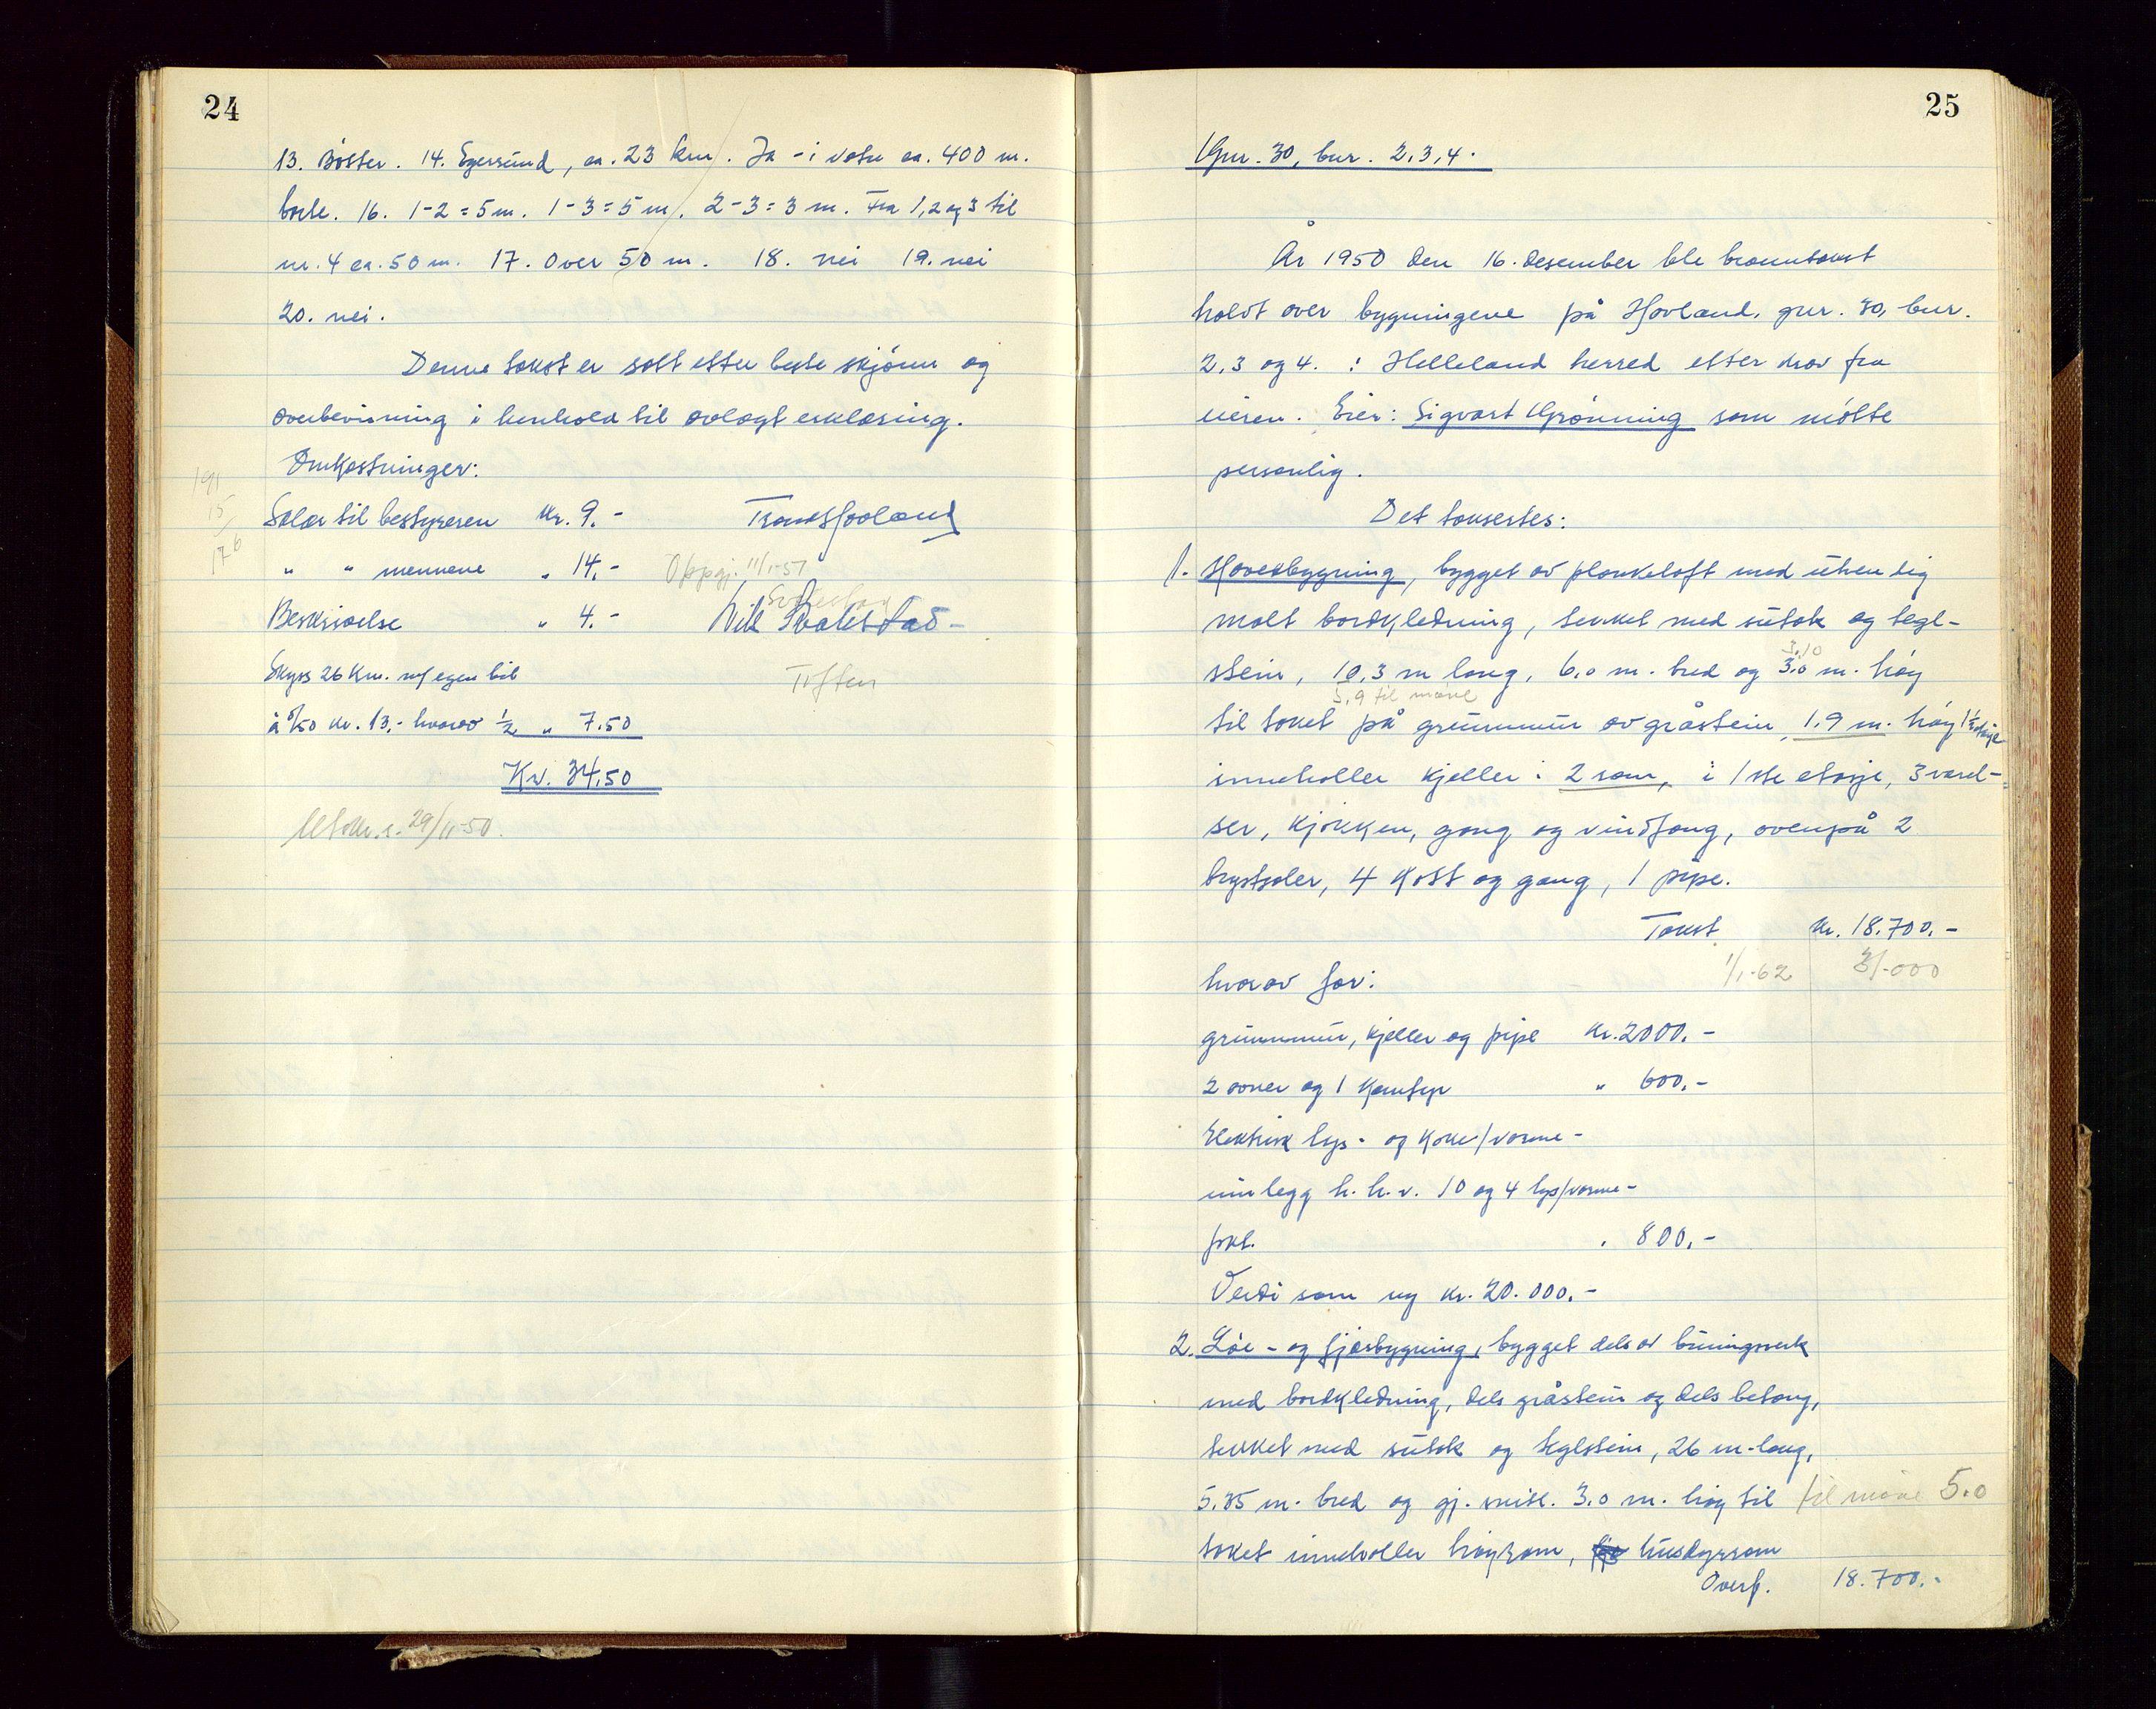 24
13. Børster. 14. Egersund, ca. 23 km. Ja - i vatn ca. 400 m.
borte. 16. 1-2 = 5 m. 1-3 = 5 m. 2-3 = 3 m. Fra 1, 2 og 3 til
nr. 4 ca. 50 m. 17. Over 50 m. 18. nei 19. nei
20. nei.
Denne takst er satt etter beste skjønn og
overbevisning i henhold til avlagt erklæring.
Omkostninger:
Salær til bestyreren Kr. 9.-
" " mennene " 14.-
Oppgj. 11/1-51
Beskrivelse " 4.-
Skyss 26 Km. m/egen bil
Toften
à 0/50 kr. 13.- hvorav 1/2 " 7.50
Kr. 34,50
Utskr. s. 29/11-50.
191
15
176
25
Gnr. 30, bnr. 2,3,4.
År 1950 den 16. desember ble branntakst
holdt over bygningene på Hovland, gnr. 30, bnr.
2, 3 og 4. i Helleland herred etter krav fra
eieren. Eier: Sigvart Grønning som møtte
personlig.
Det taksertes:
1. Hovedbygning, bygget av plankelaft med utvendig
malt bordkledning, tekket med sutak og tegl-
3,10
stein, 10,3 m lang, 6,0 m. bred og 3,0 m. høy
5,9 til møne
til taket på grunnmur av gråstein, 1,9 m. høy 1 1/2 etasje
inneholler kjeller i 2 rom, i 1ste etasje, 3 værel-
ser, kjøkken, gang og vindfang, ovenpå 2
brystsaler, 4 kott og gang, 1 pipe.
Takst Kr. 18.700.-
1/1-62 31.000
hvorav for:
grunnmur, kjeller og pipe Kr. 2000.-
2 ovner og 1 komfyr " 600.-
Elektrisk lys- og koke/varme-
innlegg h.h.v. 10 og 4 lys/varme-
pkt. " 800.-
Verdi som ny kr. 20.000.-
2. Løe- og fjøsbygning, bygget dels av binningsverk
med bordkledning, dels gråstein og dels betong,
tekket med sutak og teglstein, 26 m. lang,
5,85 m. bred og gj. snitl. 3.0 m. høy til til møne 5.0
taket inneholler høyrom, husdyrrom
Overf. 18.700.-